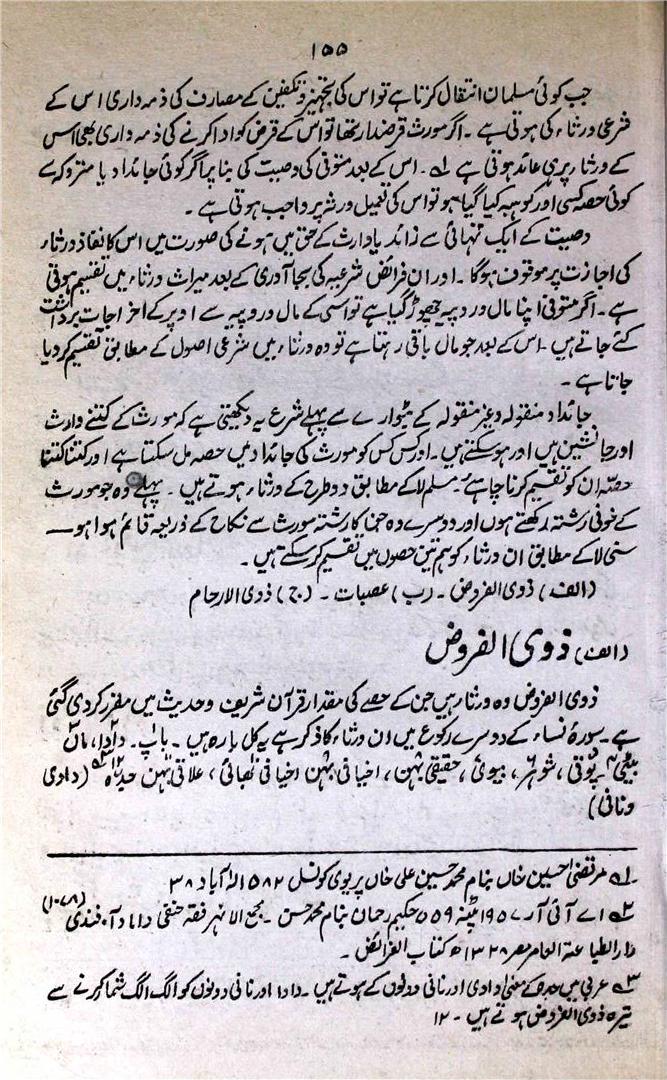 ۱۵۵
جب کوئی مسلمان انتقال کرتا ہے تو اس کی تجہیز و تکفین کے مصارف کی ذمہ داری اس کے
شرعی ورثاء کی ہوتی ہے ۔ اگر مورث قرضدار تھا تو اس کے قرض کو ادا کرنے کی ذمہ داری بھی اس
کے ورثاء پر ہی عائد ہوتی ہے ۱؎۔ اس کے بعد متوفی کی وصیت کی بنا پر اگر کوئی جائداد یا متروکہ سے
کوئی حصہ کسی اور کو ہبہ کیا گیا ہو تو اس کی تعمیل ورثہ پر واجب ہوتی ہے ۔
وصیت کے ایک تہائی سے زائد یا وارث کے حق میں ہونے کی صورت میں اس کا نفاذ ورثاء
کی اجازت پر موقوف ہوگا ۔ اور ان فرائض شرعیہ کی بجا آوری کے بعد میراث ورثاء میں تقسیم ہوتی
ہے ۔ اگر متوفی اپنا مال و روپیہ چھوڑ گیا ہے تو اسی کے مال و روپیہ سے اوپر کے اخراجات برداشت
کئے جاتے ہیں ۔ اس کے بعد جو مال باقی رہتا ہے تو وہ ورثاء میں شرعی اصول کے مطابق تقسیم کر دیا
جاتا ہے ۔
جائداد منقولہ و غیر منقولہ کے بٹوارے سے پہلے شرع یہ دیکھتی ہے کہ مورث کے کتنے وارث
اور جانشین ہیں اور ہو سکتے ہیں ۔ اور کس کس کو مورث کی جائداد میں حصہ مل سکتا ہے اور کتنا کتنا
حصہ ان کو تقسیم کرنا چاہیے ۲؎ مسلم لا کے مطابق دو طرح کے ورثاء ہوتے ہیں ۔ پہلے وہ جو مورث
کے خونی رشتہ رکھتے ہوں اور دوسرے وہ جن کا رشتہ مورث سے نکاح کے ذریعہ قائم ہوا ہو ــــ
سنی لا کے مطابق ان ورثاء کو ہم تین حصوں میں تقسیم کر سکتے ہیں ۔
(الف) ذوی الفروض ۔ (ب) عصبات ۔ (ج) ذوی الارحام
(الف) ذوی الفروض
ذوی الفروض وہ ورثاء ہیں جن کے حصے کی مقدار قرآن شریف و حدیث میں مقرر کر دی گئی
ہے ۔ سورۂ نساء کے دوسرے رکوع میں ان ورثاء کا ذکر ہے یہ کل بارہ ہیں ۔ باپ۱ ۔ دادا۲، ماں۳
بیٹی۴ ۔ پوتی۵، شوہر۶، بیوی۷، حقیقی بہن۸، اخیافی بہن۹ اخیافی بھائی۱۰، علاتی بہن۱۱ جدہ۱۲ ۳؎ (دادی
و نانی)
۱؎ مرتضیٰ حسین خاں بنام محمد حسین علی خاں پریوی کونسل ۵۸۲ الہ آباد ۳۸
۲؎ اے آئی آر ۱۹۵۷ پٹنہ ۵۵۹ حکیم رحمان بنام محمد حسن ۔ مجمع الانہر فقہ حنفی داماد آفندی (۱۰۷۸)
دار الطباعۃ العامرہ مصر ۱۳۲۸ھ کتاب الفرائض ۔
۳؎ عربی میں جدہ کے معنی دادی اور نانی دونوں کے ہوتے ہیں ۔ دادا اور نانی دونوں کو الگ الگ شمار کرنے سے
تیرہ ذوی الفروض ہوتے ہیں ۔ ۱۲